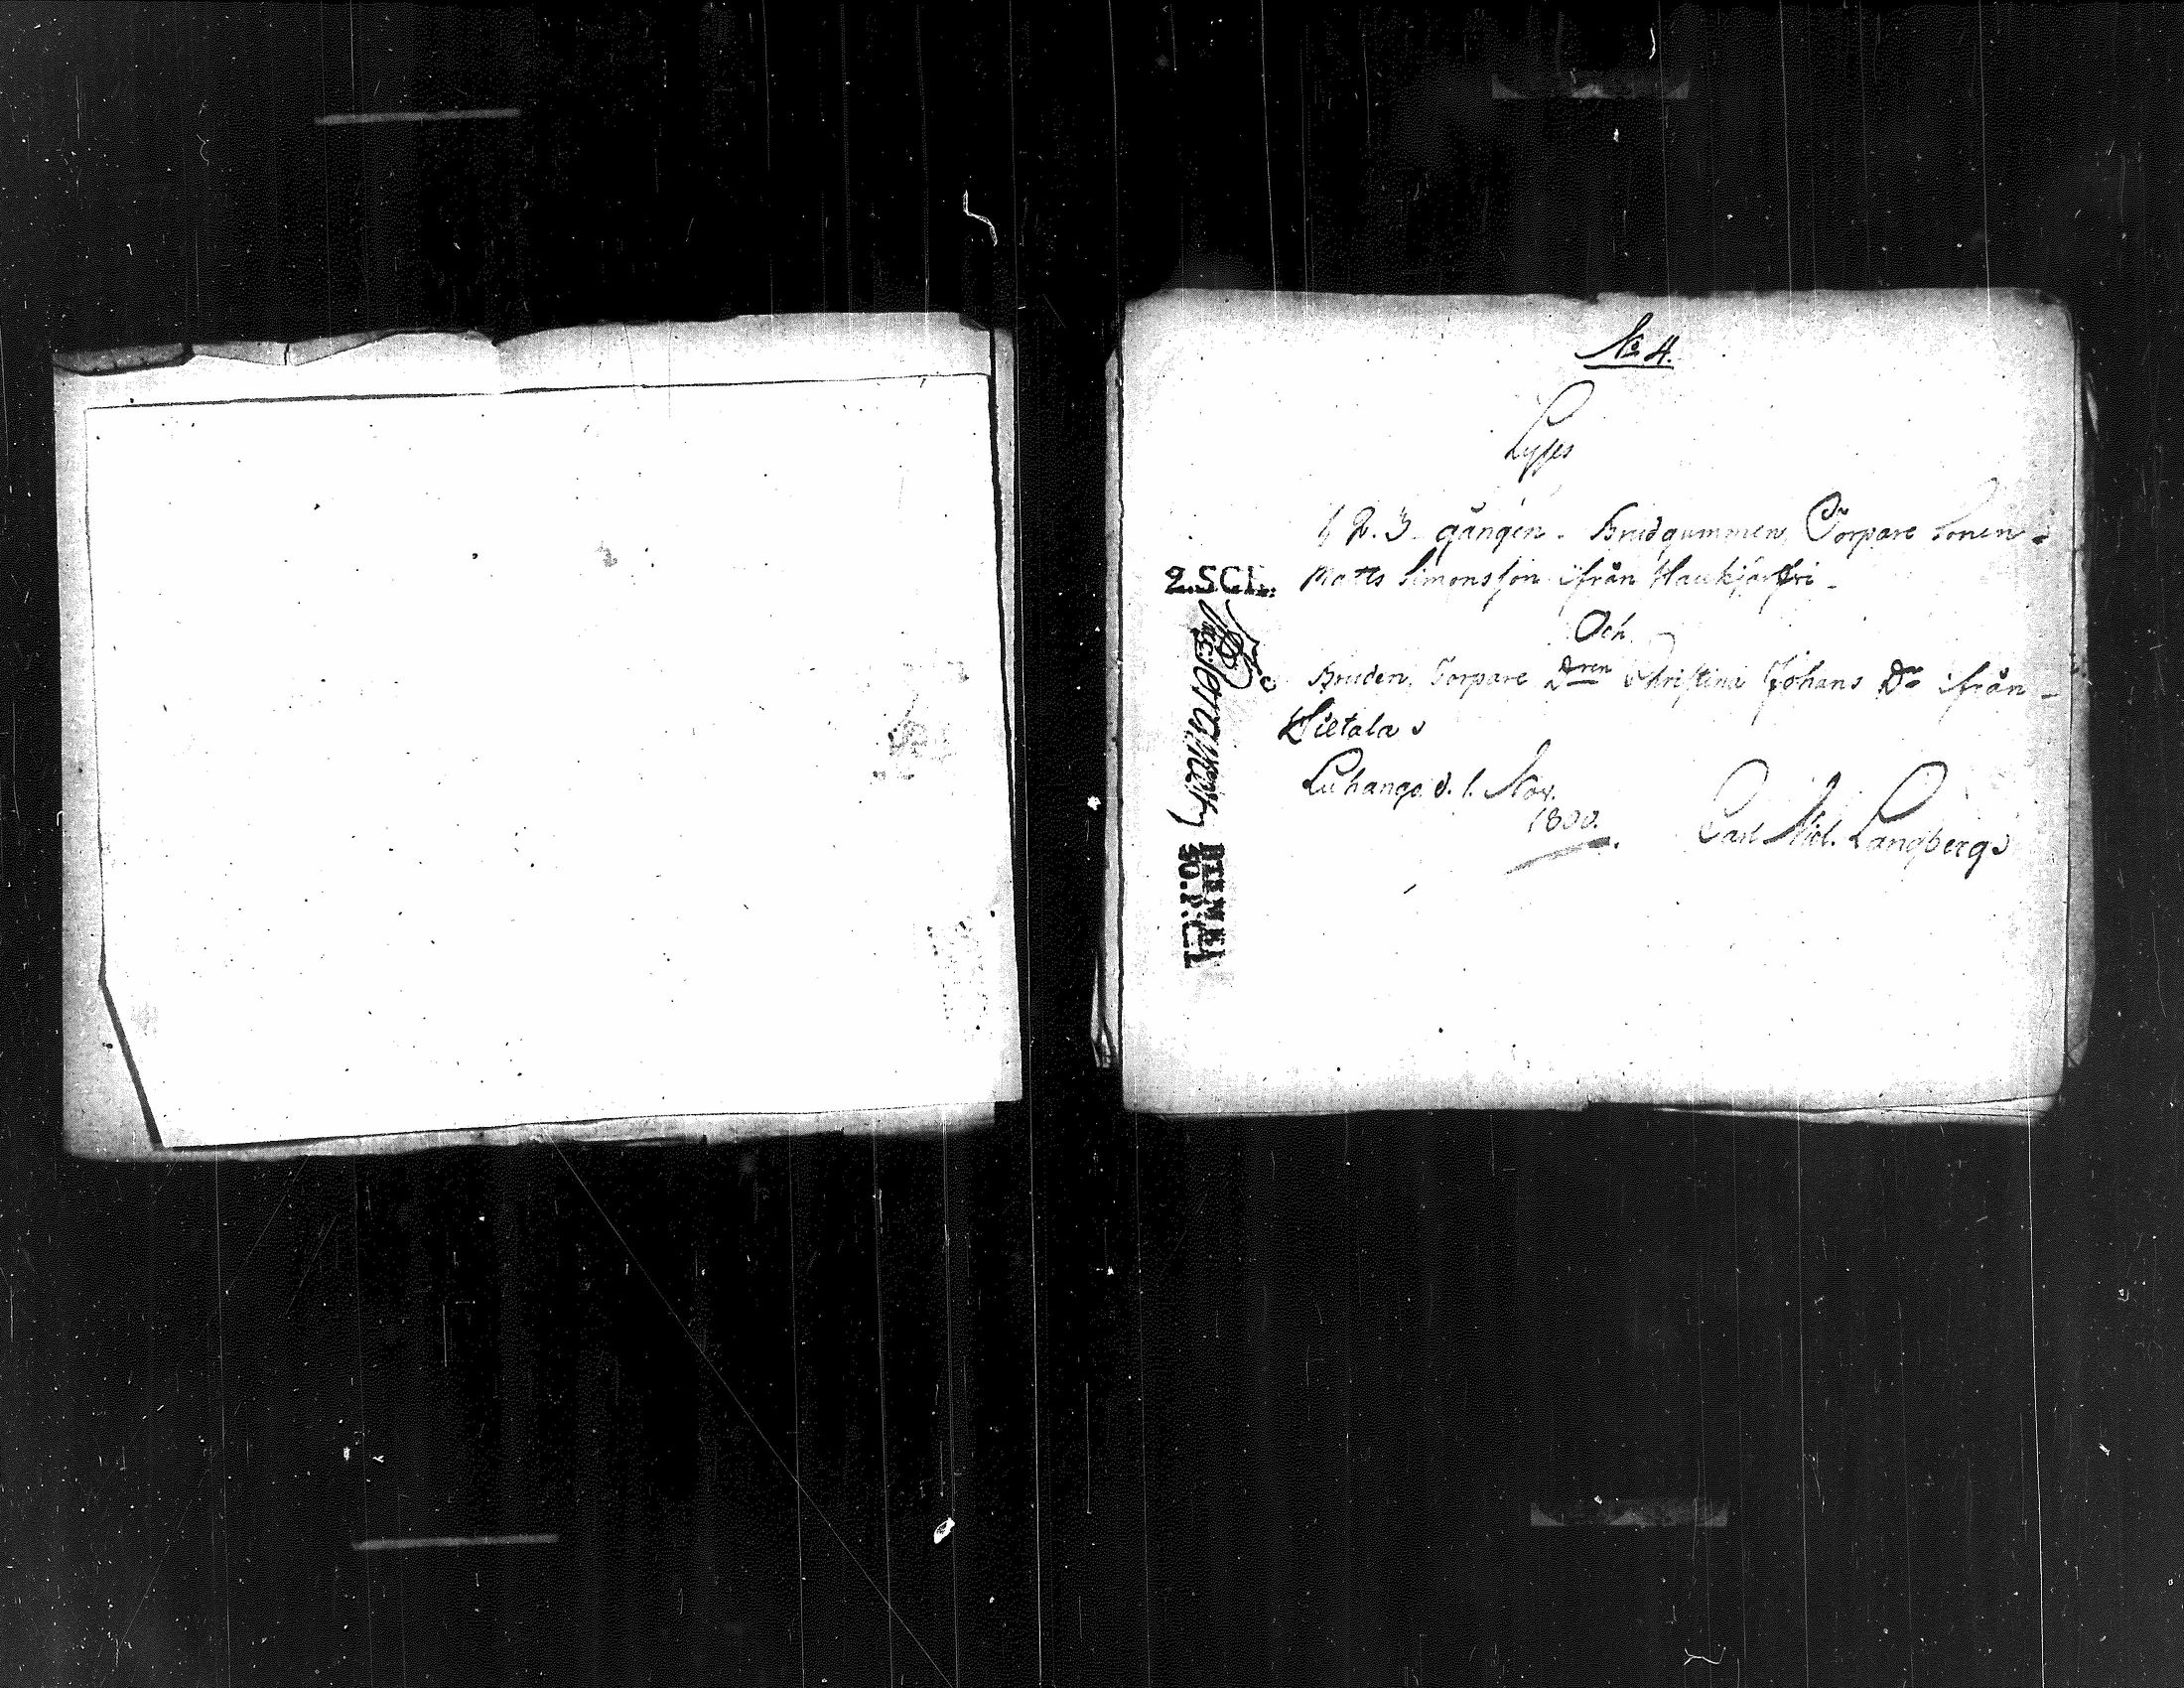 No 4.
Lyses
1 2. 3. gången. Brudgummen, Torpare Sonen
Matts Simonsson ifrån Haukjärfvi
Och
Bruden, Torpare Dren Christina Johans Dr ifrån
Sietala
Luhango d. 1. Nov.
1800.
Carl Nicl. Langberg
2.SCH.